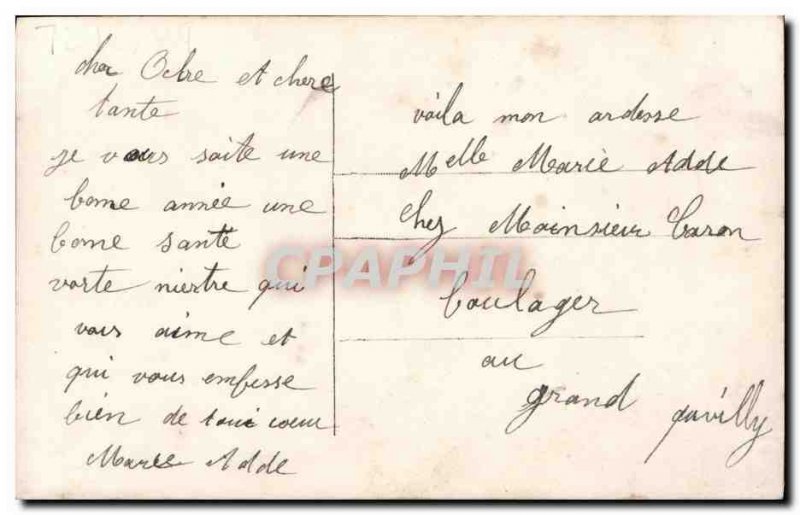 cher Oclre et chere
tante
je vous saite une
bonne année une
bonne santé
vorte niestre qui
vous aime et
qui vous embesse
bien de tout coeur
Marie Adde
voila mon ardesse
Melle Marie Adde
chez Moinsieur Caron
boulager
au
grand pavilly
CPAPHIL